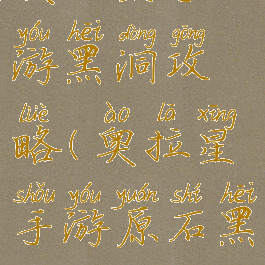 yóu hēi dòng gōng
游黑洞攻
lüè ào lā xīng
略(奥拉星
shǒu yóu yuán shí hēi
手游原石黑